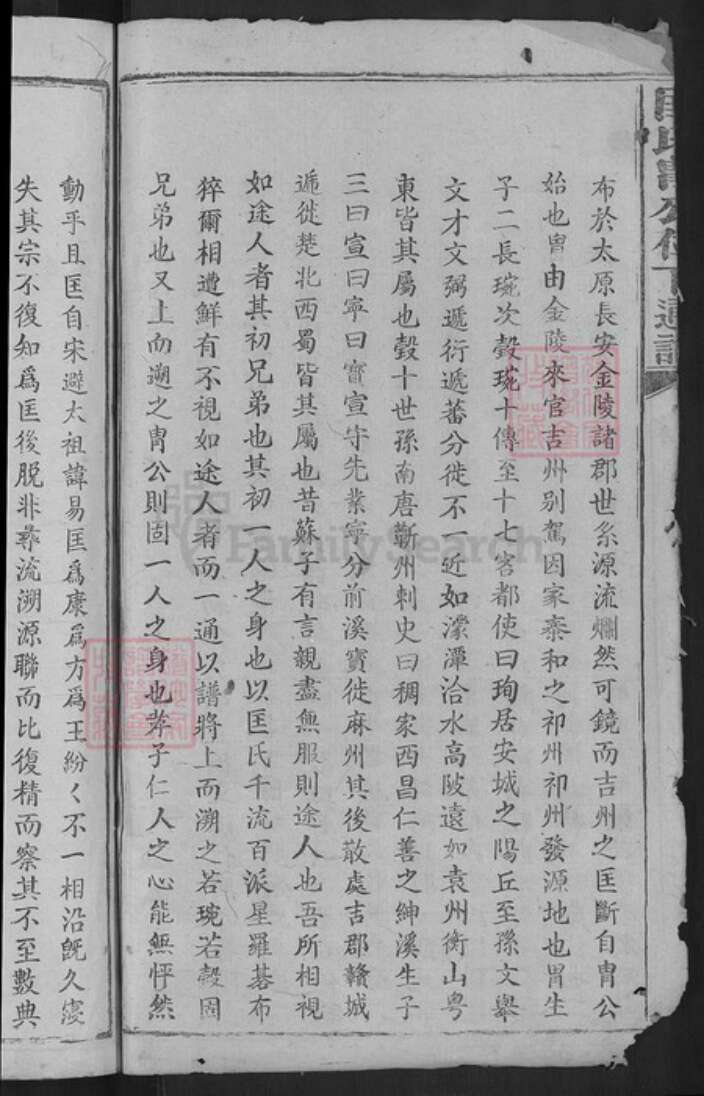 匡氏胄公位下通譜
布於太原長安金陵諸郡世系源流爛然可鏡而吉州之匡斷自胄公
始也胄由金陵來官吉州别駕因家泰和之祁州祁州發源地也胃生
子二長琬次瑴琬十傳至十七客都使曰珣居安城之陽丘至孫文舉
文才文弼遞衍遞蕃分徙不一近如濛潭洽水高陂遠如袁州衡山粤
東皆其屬也瑴十世孫南唐蘄州刺史曰稠家西昌仁善之紳溪生子
三曰宣曰寧曰寳宣守先業寧分前溪寳徙麻州其後散處吉郡贛城
遞徙楚北西蜀皆其屬也昔蘇子有言親盡無服則途人也吾所相視
如途人者其初兄弟也其初一人之身也以匡氏千流百派星羅碁布
猝爾相遭鮮有不視如途人者而一通以譜將上而溯之若琬若瑴固
兄弟也又上而遡之胄公則固一人之身也孝子仁人之心能無怦然
動乎且匡自宋避太祖諱易匡爲康爲方爲王紛〱不一相沿旣久寖
失其宗不復知爲匡後脱非尋流溯源聯而比復精而察其不至數典
FamilySearch